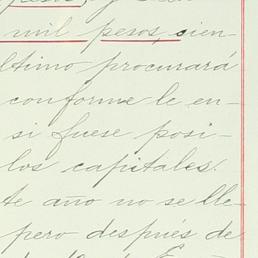 pesos, y
mil pesos, sien-
ltimo procurará
conforme le en-
si fuese posi-
los capitales.
te año no se lle-
pero después de